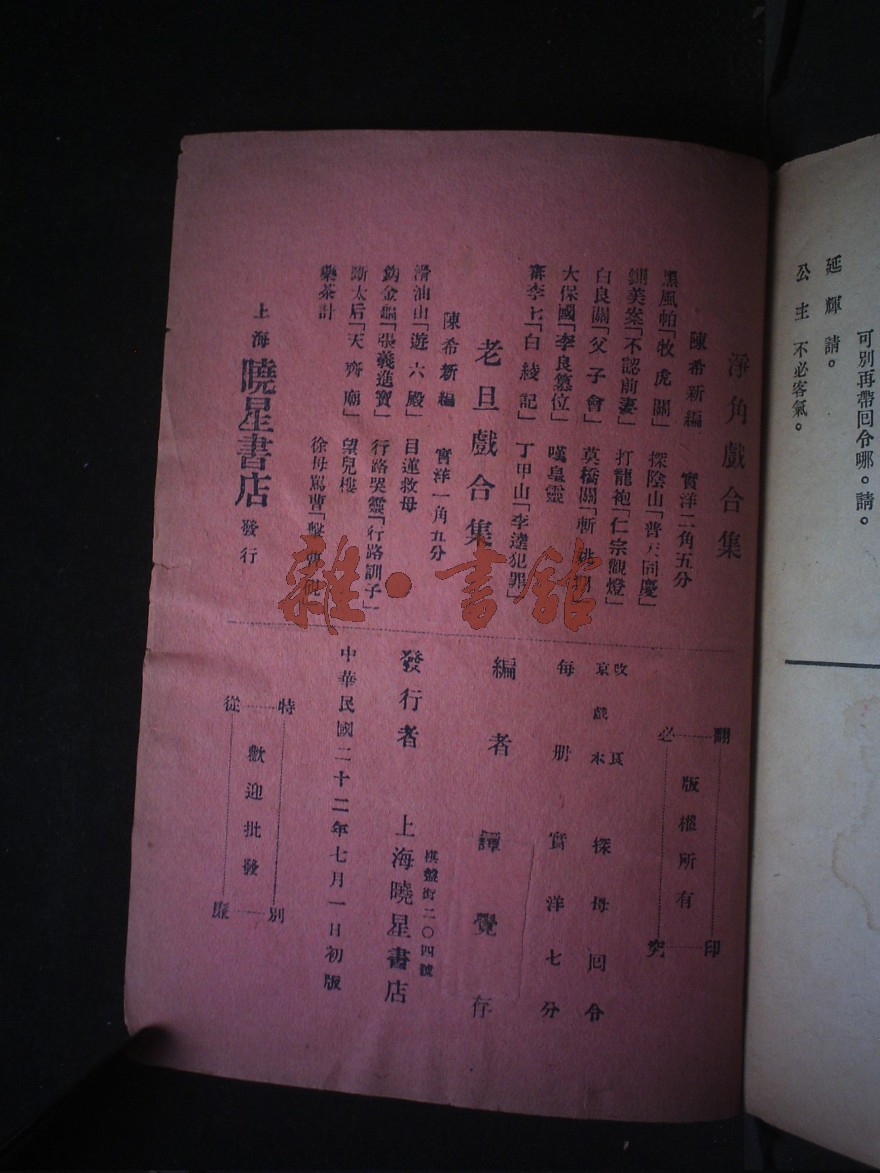 可別再帶回令哪。請。
延輝 請。
公主 不必客氣。
淨角戲合集
陳希新編 實洋二角五分
黑風帕「牧虎關」 探陰山「普天同慶」
鍘美案「不認前妻」 打龍袍「仁宗觀燈」
白良關「父子會」 莫橋關「斬
大保國「李良篡位」 嘆皇靈
審李七「白綾記」 丁甲山「李逵犯罪」
老旦戲合集
陳希新編 實洋一角五分
滑油山「遊六殿」 目蓮救母
釣金龜「張義進寶」 行路哭靈「行路訓子」
斷太后「天齊廟」 望兒樓
藥茶計 徐母罵曹「擊
上海 曉星書店 發行
雜·書館
翻印必究
版權所有
改良京戲本 探母回令
每册實洋七分
編者 譚覺存
發行者 上海曉星書店
棋盤街二〇四號
中華民國二十二年七月一日初版
特別從廉
歡迎批發